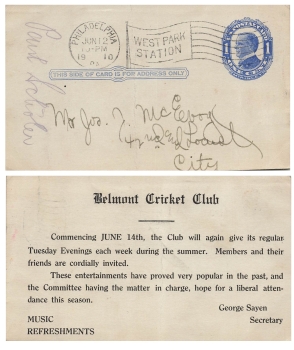 PHILADELPHIA
JUN 12
PM
1910
PA.
WEST PARK
STATION
1
1
THIS SIDE OF CARD IS FOR ADDRESS ONLY
Paul Schober
Mr Jos. T. McEvoy
42nd and Locust
City
Belmont Cricket Club
Commencing JUNE 14th, the Club will again give its regular
Tuesday Evenings each week during the summer. Members and their
friends are cordially invited.
These entertainments have proved very popular in the past, and
the Committee having the matter in charge, hope for a liberal atten-
dance this season.
George Sayen
MUSIC Secretary
REFRESHMENTS